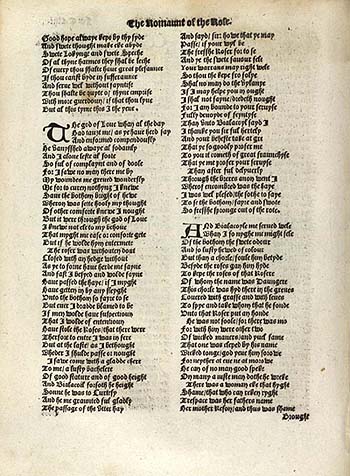 The Romaunt of the Rose.
Good hope alwaye kepe by thy syde
And swete thought make eke abyde
Swete Lokynge and swete Speche
Of al thyne harmes they shal be leche
Of every thou shalte haue great plesaunce
If thou canst byde in sufferaunce
And serue wel without fayntise
Thou shalte be quyte of thyne emprise
With more guerdoun / if that thou lyue
But al this tyme this I the yeue.
The god of Loue whan al the day
Had taught me / as ye haue herd say
And enfourmed compendously
He vanysshed awaye al sodainly
And I alone lefte al soole
So ful of complaynt and of doole
For I sawe no man there me by
My woundes me greued wonderfly
Me for to curen nothyng I knewe
Saue the bothom bright of hewe
Wheron was sette hooly my thought
Of other comforte knewe I nought
But it were through the god of Loue
I knewe nat els to my behoue
That myght me ease or comforte gete
But if he wolde hym entermete
The roser was withouten dout
Closed with an hedge without
As ye to forne haue herde me sayne
And fast I besyed and wolde fayne
Haue passed the haye / if I myght
Haue getten in by any slyght
Unto the bothom so fayre to se
But euer I dradde blamed to be
If men wolde haue suspectioun
That I wolde of ententioun
Haue stole the Roses / that there were
Therfore to entre I was in fere
But at the last / as I bethought
Wheder I shulde passe or nought
I sawe come with a gladde chere
To me / a lusty bachelere
Of good stature and of good height
And Bialacoil forsoth he height
Sonne he was to Curtesy
And he me graunted ful gladly
The passage of the vtter hay
And sayd / sir: how that ye may
Passe / if your wyl be
The fresshe Roser for to se
And ye the swete sauour fele
Your warrans may right wele
So thou the kepe fro folye
Shal no man do the vylanye
If I may helpe you in ought
I shal nat fayne / dredeth nought
For I am bounde to your seruyse
Fully deuoyde of feyntyse
Than vnto Bialacoil sayd I
I thanke you sir ful hertely
And your beheste take at gre
That ye so goodly profer me
To you it cometh of great fraunchyse
That ye me profer your seruyse
Than after ful delyuerly
Through the breres anon went I
Wherof encombred was the haye
I was wel plesed / the sothe to saye
To se the bothom / fayre and swote
So fresshe spronge out of the rote.
AND Bialacoyle me serued wele
Whan I so nyghe me might fele
Of the bothom the swete odour
And so lusty hewed of colour
But than a chorle / foule hym betyde
Besyde the roses gan hym hyde
To kepe the roses of that Rosere
Of whom the name was Daungere
This chorle was hyd there in the greues
Couered with grasse and with leues
To spye and take whom that he fonde
Unto that Roser put an honde
he was not soole / for there was mo
For with him were other two
Of wicked maners / and yuel fame
That one was cleped by his name
Wicked tonge / god yeue hym sorowe
For neyther at eue ne at morowe
He can of no man good speke
On many a iuste man dothe he wreke
There was a woman eke that hyght
Shame / that who can reken ryght
Trespace was her fathers name
Her mother Reson / and thus was Shame
Brought